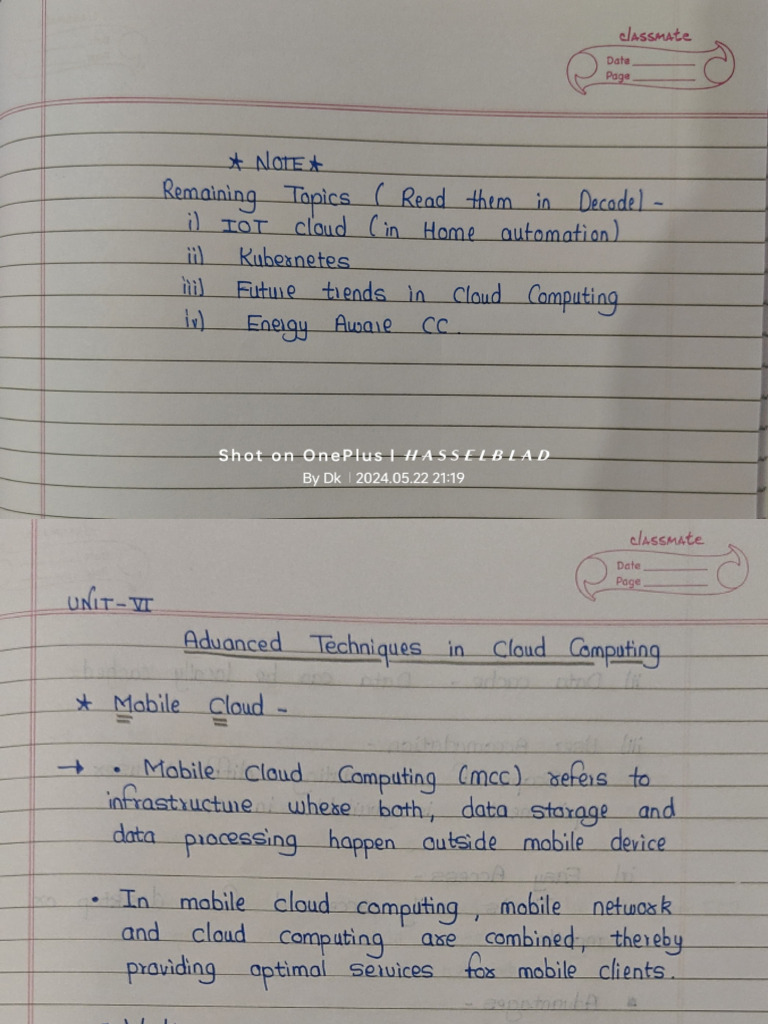 classmate
Date
Page
★ NOTE ★
Remaining Topics ( Read them in Decode) -
i) IOT cloud (in Home automation)
ii) Kubernetes
iii) Future trends in Cloud Computing
iv) Energy Aware CC.
Shot on OnePlus | HASSELBLAD
By Dk | 2024.05.22 21:19
classmate
Date
Page
UNIT-VI
Advanced Techniques in Cloud Computing
★ Mobile Cloud -
→ • Mobile Cloud Computing (MCC) refers to
infrastructure where both, data storage and
data processing happen outside mobile device
• In mobile cloud computing, mobile network
and cloud computing are combined, thereby
providing optimal services for mobile clients.